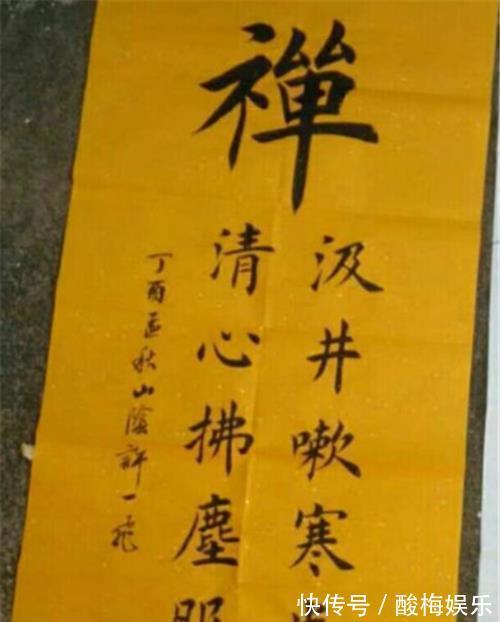 禪
汲井嗽寒
清心拂塵
丁酉秋山陰許一飛
快传号 / 酸梅娱乐